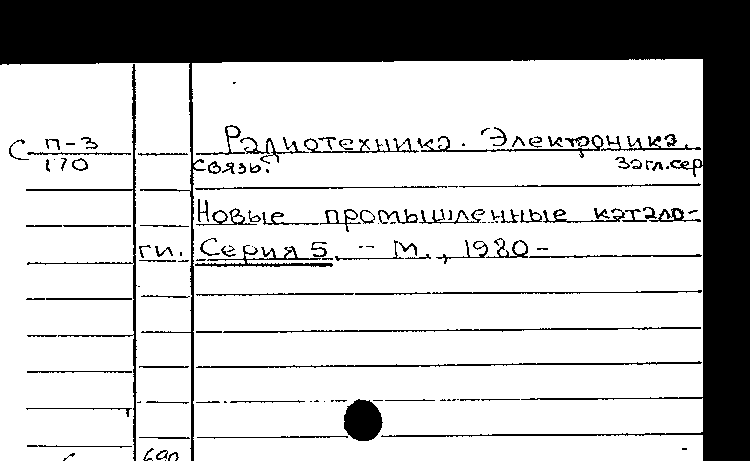 С П-3 Радиотехника. Электроника.
170 связь. Загл.сер
Новые промышленные катало-
ги. Серия 5. - М., 1980 -
690